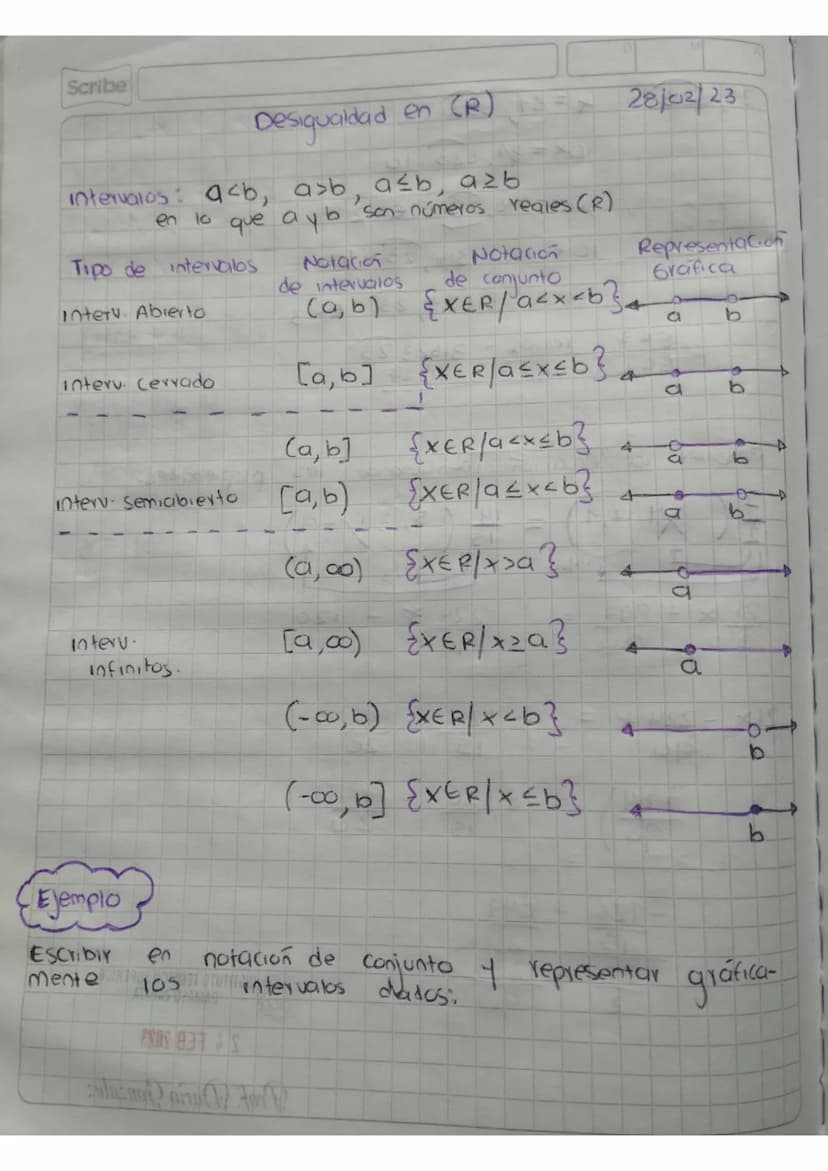 Scribe
Desigualdad en (R) 28/02/23
Intervalos: a<b, a>b, a≤b, a≥b
en lo que a y b son números reales (R)
Tipo de intervalos Notación de intervalos Notación de conjunto Representación Gráfica
Interv. Abierto (a,b) {X∈R/a<x<b} a b
Interv. cerrado [a,b] {X∈R/a≤x≤b} a b
(a,b] {X∈R/a<x≤b} a b
Interv. semiabierto [a,b) {X∈R/a≤x<b} a b
(a,∞) {X∈R/x>a} a
Interv. infinitos. [a,∞) {X∈R/x≥a} a
(-∞,b) {X∈R/x<b} b
(-∞,b] {X∈R/x≤b} b
Ejemplo
Escribir en notación de conjunto y representar gráfica-
mente los intervalos dados: